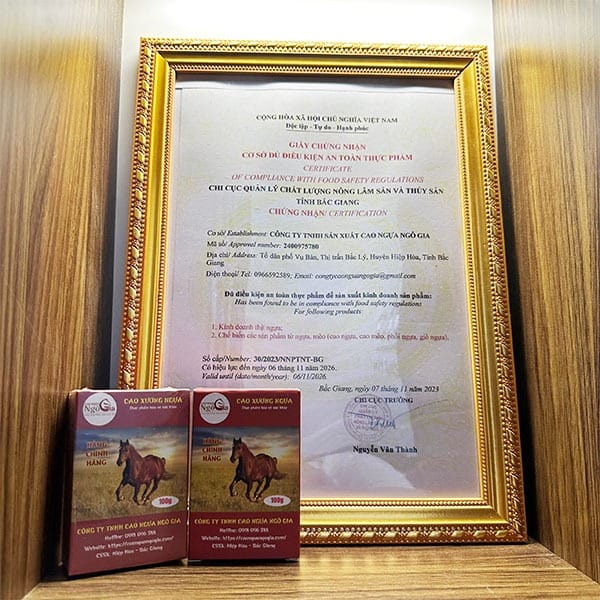 CỘNG HÒA XÃ HỘI CHỦ NGHĨA VIỆT NAM
Độc lập - Tự do - Hạnh phúc
GIẤY CHỨNG NHẬN
CƠ SỞ ĐỦ ĐIỀU KIỆN AN TOÀN THỰC PHẨM
CERTIFICATE
OF COMPLIANCE WITH FOOD SAFETY REGULATIONS
CHI CỤC QUẢN LÝ CHẤT LƯỢNG NÔNG LÂM SẢN VÀ THỦY SẢN
TỈNH BẮC GIANG
CHỨNG NHẬN/ CERTIFICATION
Cơ sở/ Establishment: CÔNG TY TNHH SẢN XUẤT CAO NGỰA NGÔ GIA
Mã số/ Approval number: 2400975780
Địa chỉ/ Address: Tổ dân phố Vụ Bản, Thị trấn Bắc Lý, Huyện Hiệp Hòa, Tỉnh Bắc
Giang
Điện thoại/ Tel: 0966592589; Email: congtycaonguangogia@gmail.com
Đủ điều kiện an toàn thực phẩm để sản xuất kinh doanh sản phẩm:
Has been found to be in compliance with food safety regulations
For following products:
1. Kinh doanh thịt ngựa;
2. Chế biến các sản phẩm từ ngựa, mèo (cao ngựa, cao mèo, phổi ngựa, giò ngựa).
Số cấp/Number: 30/2023/NNPTNT-BG
Có hiệu lực đến ngày 06 tháng 11 năm 2026.
Valid until (date/month/year): 06/11/2026.
Bắc Giang, ngày 07 tháng 11 năm 2023
CHI CỤC TRƯỞNG
Nguyễn Văn Thành
Ngô Gia
CAO XƯƠNG NGỰA
Thực phẩm bảo vệ sức khỏe
HÀNG
CHÍNH
HÃNG
100g
CÔNG TY TNHH CAO NGỰA NGÔ GIA
Website: https://caonguangogia.com
CSSX: Hiệp Hòa - Bắc Giang
Ngô Gia
CAO XƯƠNG NGỰA
Thực phẩm bảo vệ sức khỏe
HÀNG
CHÍNH HÃNG
100g
CÔNG TY TNHH CAO NGỰA NGÔ GIA
Website: https://caonguangogia.com
CSSX: Hiệp Hòa - Bắc Giang